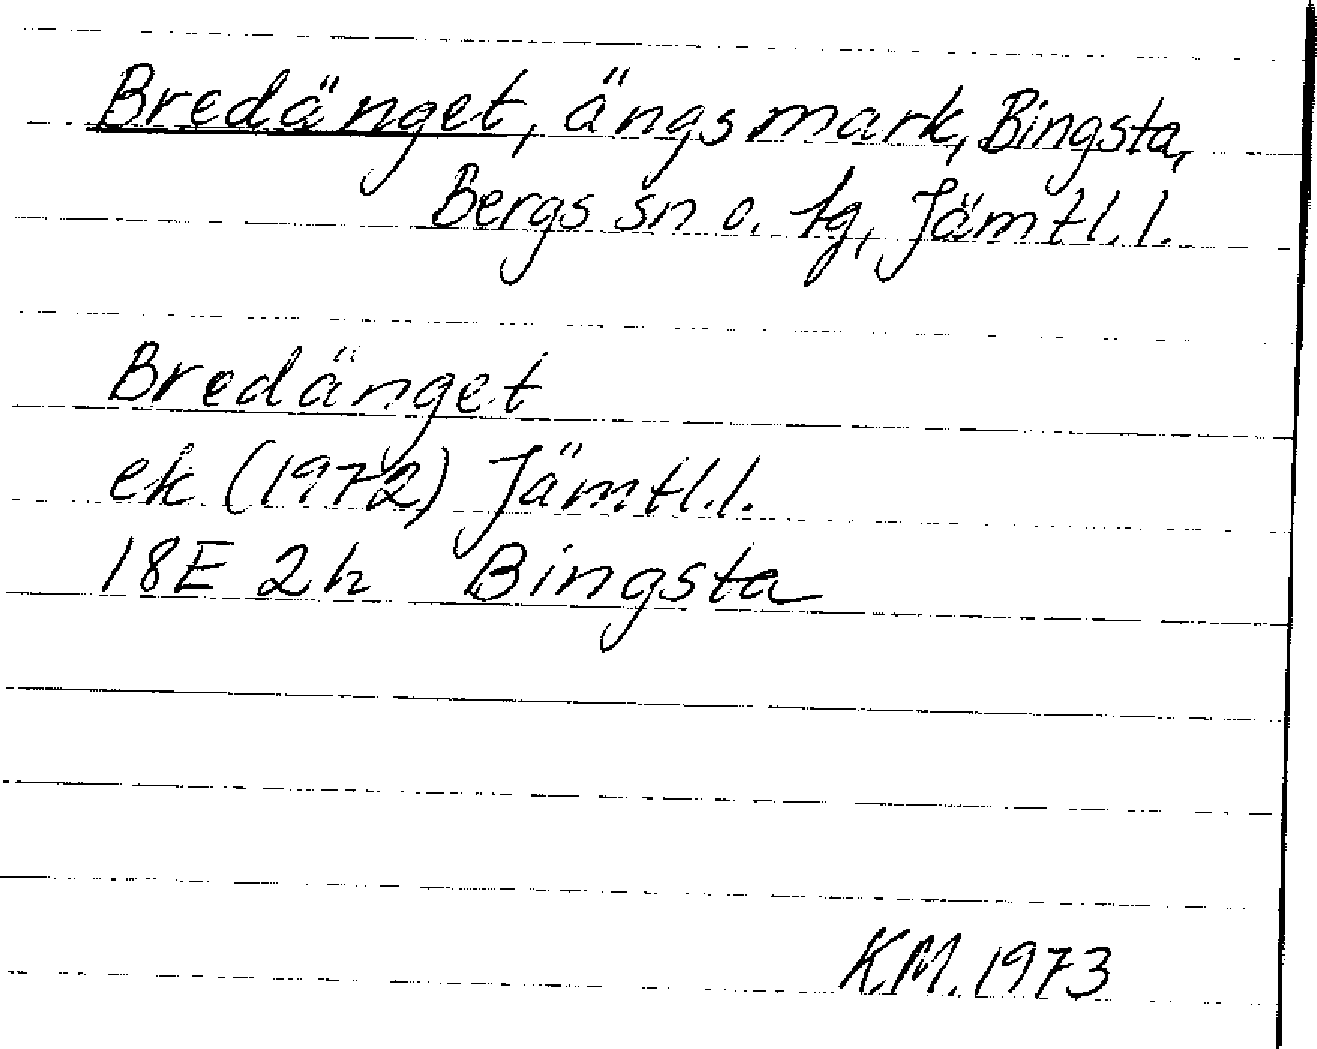 Bredänget, ängsmark, Bingsta,
Bergs sn o. tg, Jämtl. l.
Bredänget
ek (1972) Jämtl. l.
18E 2h Bingsta
KM. 1973